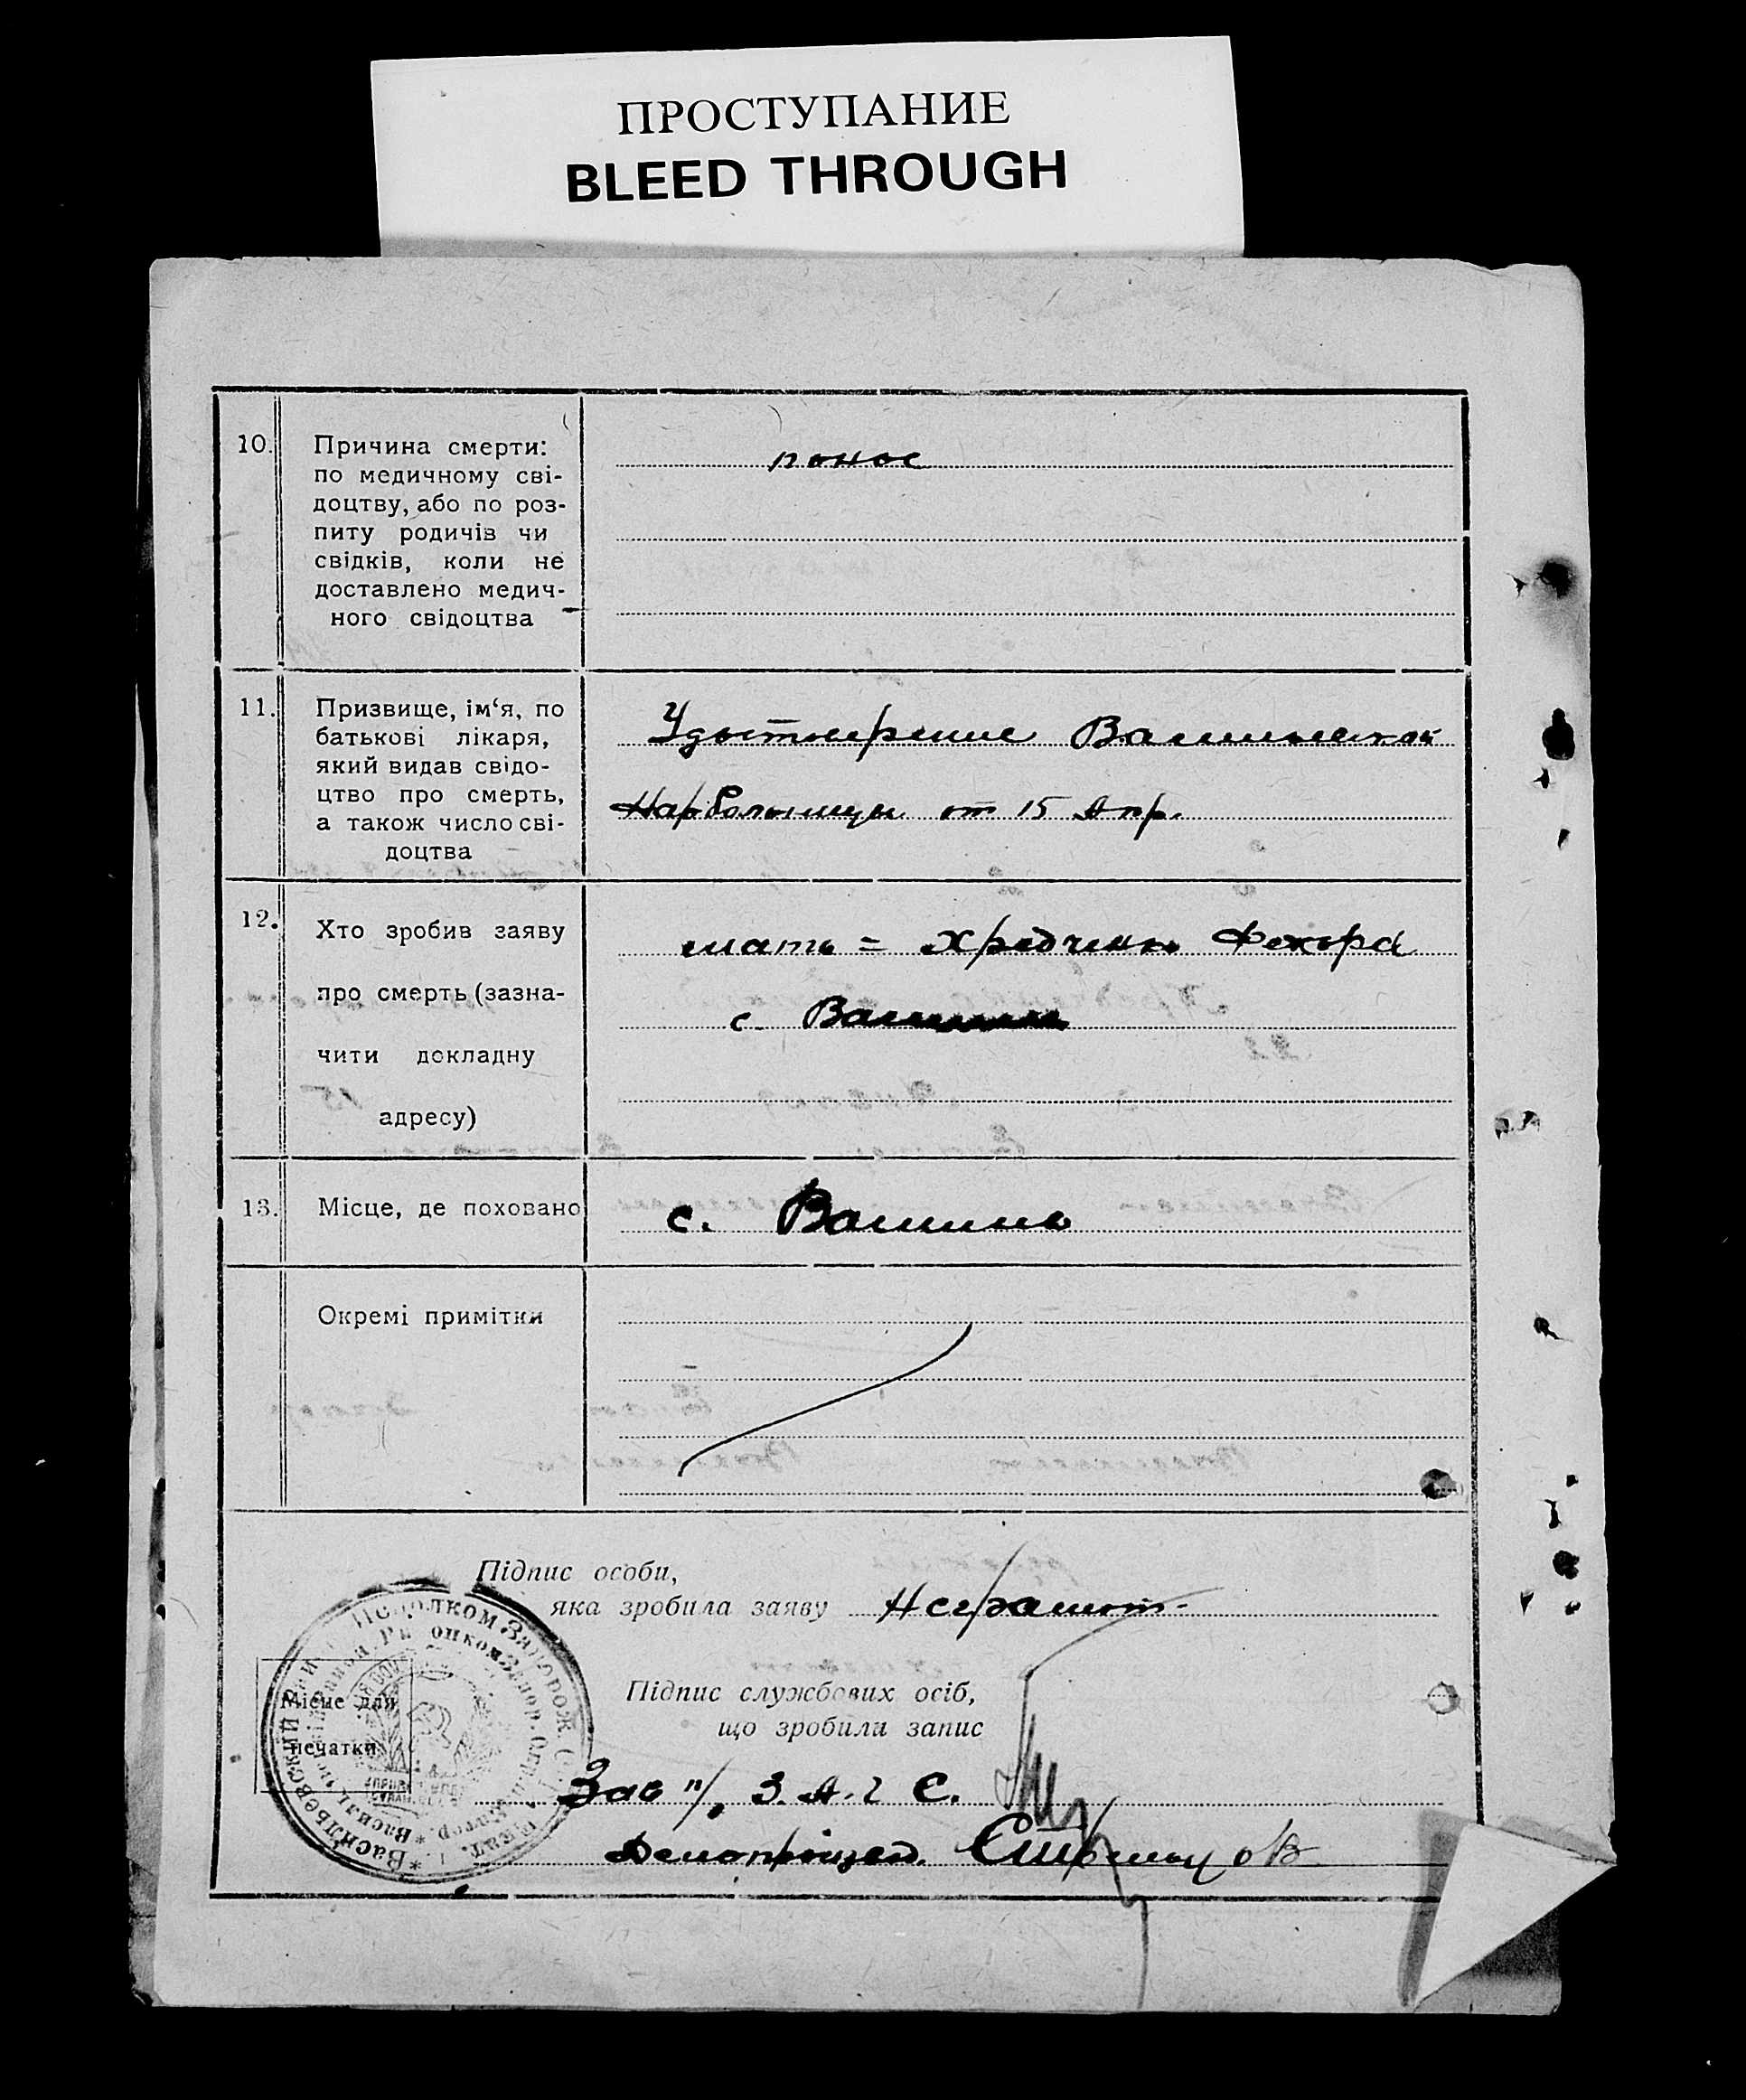 ПРОСТУПАНИЕ
BLEED THROUGH
10.
Причина смерти:
по медичному сві-
доцтву, або по роз-
питу родичів чи
свідків, коли не
доставлено медич-
ного свідоцтва
понос
11.
Призвище, ім‘я, по
батькові лікаря,
який видав свідо-
цтво про смерть,
а також число сві-
доцтва
Удостоверение
Нарбольницы от 15 Апр.
12.
Хто зробив заяву
про смерть (зазна-
чити докладну
адресу)
мать =
с.
13.
Місце, де поховано
с.
Окремі примітки
Підпис особи,
яка зробила заяву
Неграмот.
Місце для
печатки
Підпис службових осіб,
що зробили запис
Зав З.А.Г С.